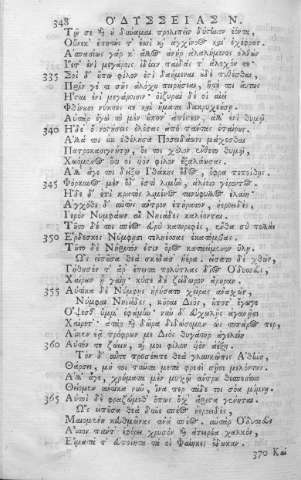 348 ΟΔΥΣΣΕΙΑΣ Ν.
Τῷ σε καὶ οὐ δύναμαι προλιπεῖν δύστηνον ἐόντα,
Οὕνεκ' ἐπητής τ' ἐσσὶ καὶ ἀγχίνοος καὶ ἐχέφρων.
Ἀσπασίως γάρ κ' ἄλλος ἀνὴρ ἀλαλήμενος ἐλθὼν
Ἵετ' ἐνὶ μεγάροις ἰδέειν παῖδάς τ' ἄλοχόν τε·
335 Σοὶ δ' οὔπω φίλον ἐστὶ δαήμεναι οὐδὲ πυθέσθαι,
Πρίν γ' ἔτι σῆς ἀλόχου πειρήσεαι, ἥτε τοι αὔτως
Ἧσται ἐνὶ μεγάροισιν· ὀϊζυραὶ δέ οἱ αἰεὶ
Φθίνουσιν νύκτες τε καὶ ἤματα δακρυχεούσῃ.
Αὐτὰρ ἐγὼ τὸ μὲν οὔποτ' ἀπίστεον, ἀλλ' ἐνὶ θυμῷ
340 Ἤιδε' ὃ νοστήσεις ὀλέσας ἄπο πάντας ἑταίρους.
Ἀλλά τοι οὐκ ἐθέλησα Ποσειδάωνι μάχεσθαι
Πατροκασιγνήτῳ, ὅς τοι κότον ἔνθετο θυμῷ,
Χωόμενος ὅτι οἱ υἱὸν φίλον ἐξαλάωσας.
Ἀλλ' ἄγε τοι δείξω Ἰθάκης ἕδος, ὄφρα πεποίθῃς·
345 Φόρκυνος μὲν ὅδ' ἐστὶ λιμήν, ἁλίοιο γέροντος·
Ἥδε δ' ἐπὶ κρατὸς λιμένος τανύφυλλος ἐλαίη·
Ἀγχόθι δ' αὐτῆς ἄντρον ἐπήρατον, ἠεροειδές,
Ἱερὸν Νυμφάων αἳ Νηϊάδες καλέονται.
Τοῦτο δέ τοι σπέος εὐρὺ κατηρεφές, ἔνθα σὺ πολλὰς
350 Ἔρδεσκες Νύμφῃσι τεληέσσας ἑκατόμβας·
Τοῦτο δὲ Νήριτόν ἐστιν ὄρος καταειμένον ὕλῃ.
Ὣς εἰποῦσα θεὰ σκέδασ' ἠέρα, εἴσατο δὲ χθών,
Γήθησέν τ' ἄρ' ἔπειτα πολύτλας δῖος Ὀδυσσεύς,
Χαίρων ᾗ γαίῃ· κύσε δὲ ζείδωρον ἄρουραν.
355 Αὐτίκα δὲ Νύμφῃς ἠρήσατο χεῖρας ἀνασχών,
Νύμφαι Νηϊάδες, κοῦραι Διός, οὔποτ' ἔγωγε
Ὄψεσθ' ὔμμ' ἐφάμην· νῦν δ' εὐχωλῇς ἀγανῇσι
Χαίρετ'· ἀτὰρ καὶ δῶρα διδώσομεν ὡς τοπάρος περ,
Αἴ κεν ἐᾷ πρόφρων με Διὸς θυγάτηρ ἀγελείη
360 Αὐτόν τε ζώειν, καί μοι φίλον υἱὸν ἀέξῃ.
Τὸν δ' αὖτε προσέειπε θεὰ γλαυκῶπις Ἀθήνη,
Θάρσει, μή τοι ταῦτα μετὰ φρεσὶ σῇσι μελόντων.
Ἀλλ' ἄγε, χρήματα μὲν μυχῷ ἄντρου θεσπεσίοιο
Θείομεν αὐτίκα νῦν, ἵνα περ τάδε τοι σόα μίμνῃ.
365 Αὐτοὶ δὲ φραζώμεθ' ὅπως ὄχ' ἄριστα γένηται.
Ὣς εἰποῦσα θεὰ δῦνε σπέος ἠεροειδές,
Μαιομένη κευθμῶνας ἀνὰ σπέος· αὐτὰρ Ὀδυσσεὺς
Ἆσσον πάντ' ἐφόρει χρυσὸν καὶ ἀτειρέα χαλκόν,
Εἵματά τ' εὐποίητα τά οἱ Φαίηκες ἔδωκαν.
370 Καὶ